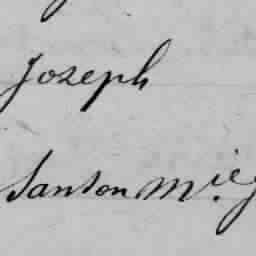 Joseph
Santon M.ie